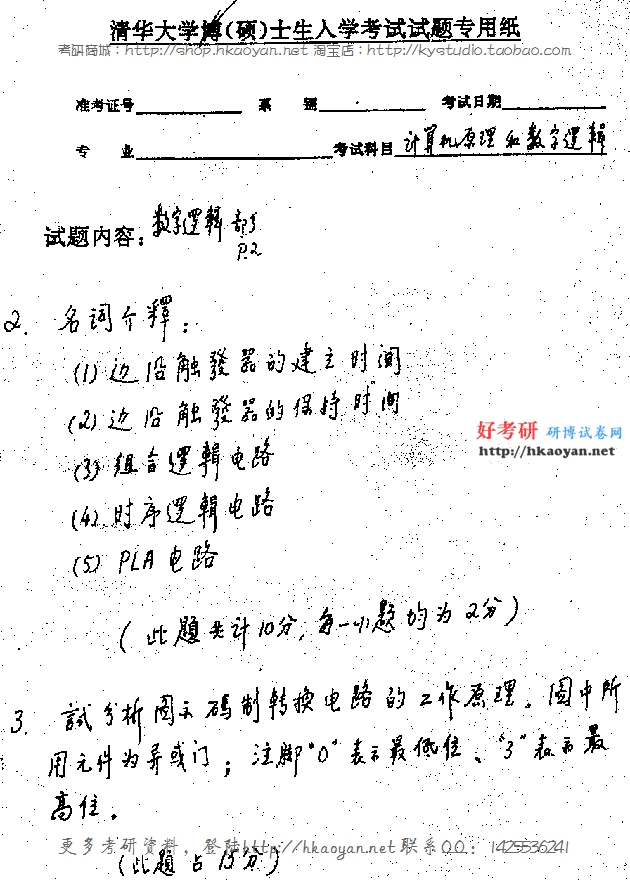 清华大学博(硕)士生入学考试试题专用纸
考研商城:http://shop.hkaoyan.net 淘宝店:http://kystudio.taobao.com
准考证号 系 别 考试日期
专 业 考试科目 计算机原理和数字逻輯
试题内容: 数字逻輯 部分
P.2
2. 名词介釋:
(1) 边沿触發器的建立时间
(2) 边沿触發器的保持时间
(3) 组合逻輯电路
(4) 时序逻輯电路
(5) PLA 电路
好考研 研博试卷网
http://hkaoyan.net
(此题共计10分,每一小题均为2分)
3. 試分析图示码制转换电路的工作原理。图中所
用元件为异或门;注脚"0"表示最低位、"3"表示最
高位。
更多考研资料,登陆http://hkaoyan.net 联系QQ:1425536241
(此题占15分)